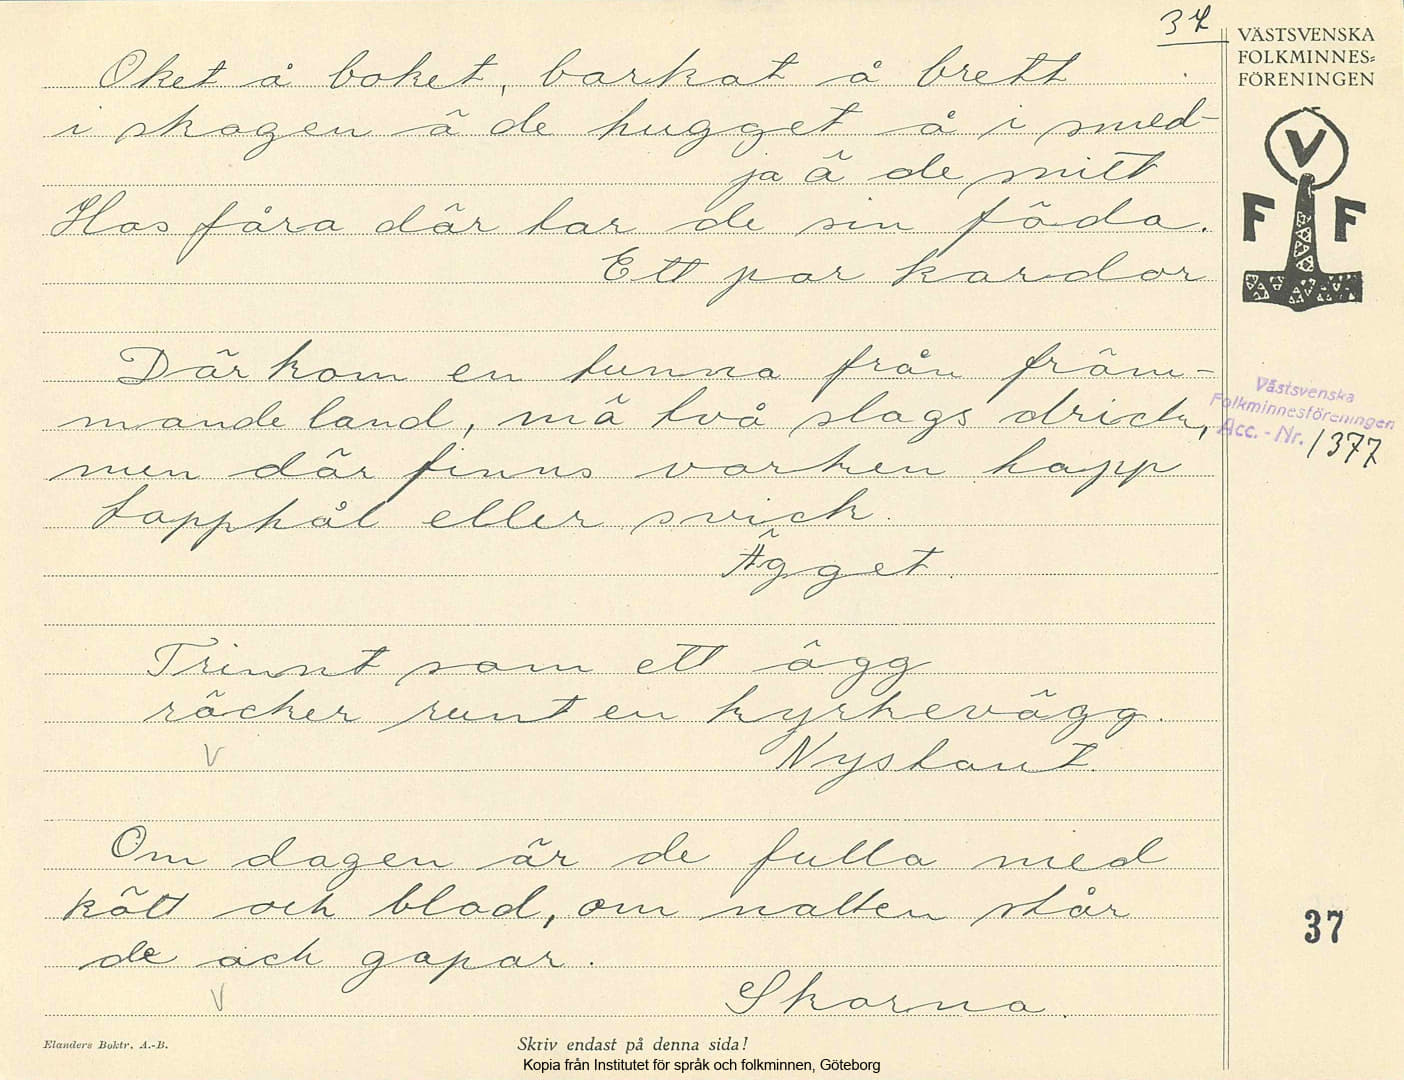 37
VÄSTSVENSKA
FOLKMINNES=
FÖRENINGEN
V
F F
Oket å boket, barkat å brett
i skogen ä de hugget å i smed-
ja ä de smitt
Hos fåra där tar de sin föda.
Ett par kardor
Där kom en tunna från främ-
mande land, mä två slags drick,
men där finns varken happ
tapphål eller svick.
Ägget.
Trinnt som ett ägg
räcker runt en kyrkevägg.
V
Nystant.
Om dagen är de fulla med
kött och blod, om natten står
de och gapar.
V
Skorna.
Västsvenska
Folkminnesföreningen
Acc. - Nr. 1377
37
Elanders Boktr. A.-B.
Skriv endast på denna sida!
Kopia från Institutet för språk och folkminnen, Göteborg